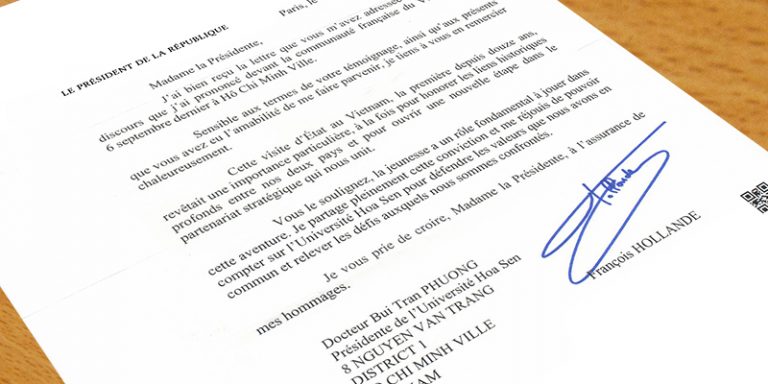 Paris, le
LE PRÉSIDENT DE LA RÉPUBLIQUE
Madame la Présidente,
J'ai bien reçu la lettre que vous m'avez adressée
discours que j'ai prononcé devant la communauté française du V
6 septembre dernier à Hô Chi Minh Ville.
Sensible aux termes de votre témoignage, ainsi qu'aux présents
que vous avez eu l'amabilité de me faire parvenir, je tiens à vous en remercier
chaleureusement.
Cette visite d'État au Vietnam, la première depuis douze ans,
revêtait une importance particulière, à la fois pour honorer les liens historiques
profonds entre nos deux pays et pour ouvrir une nouvelle étape dans le
partenariat stratégique qui nous unit.
Vous le soulignez, la jeunesse a un rôle fondamental à jouer dans
cette aventure. Je partage pleinement cette conviction et me réjouis de pouvoir
compter sur l'Université Hoa Sen pour défendre les valeurs que nous avons en
commun et relever les défis auxquels nous sommes confrontés.
Je vous prie de croire, Madame la Présidente, à l'assurance de
mes hommages.
François HOLLANDE
Docteur Bui Tran PHUONG
Présidente de l'Université Hoa Sen
8 NGUYEN VAN TRANG
DISTRICT 1
CHI MINH VILLE